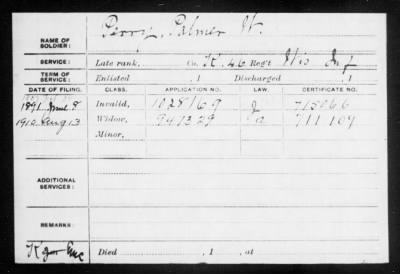 NAME OF SOLDIER: Perry, Palmer W.
SERVICE: Late rank, Co. K, 46 Reg't Wis Inf
TERM OF SERVICE: Enlisted , 1 Discharged , 1
DATE OF FILING. CLASS. APPLICATION NO. LAW. CERTIFICATE NO.
1891 June 8 Invalid, 1028169 J 715066
1910 Aug 13 Widow, 947329 Pa 711109
Minor,
ADDITIONAL SERVICES:
REMARKS:
Died , 1 , at